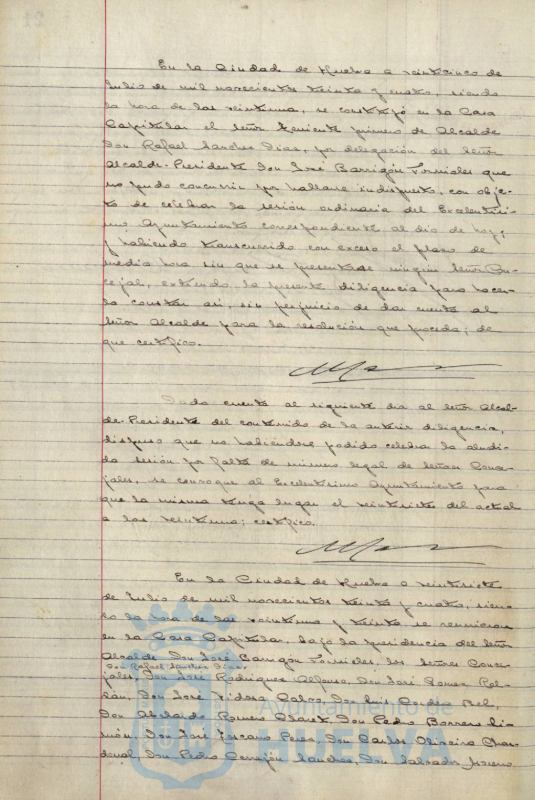 En la Ciudad de Huelva a veinticinco de
Julio de mil novecientos treinta y cuatro, siendo
la hora de las veintiuna, se constituyó en la Casa
Capitular el señor Teniente primero de Alcalde
Don Rafael Sanchez Diaz, por delegación del Señor
Alcalde-Presidente Don José Barrigón Fornieles que
no pudo concurrir por hallarse indispuesto, con obje-
to de celebrar la sesión ordinaria del Excelentísi-
mo Ayuntamiento correspondiente al día de hoy;
y habiendo transcurrido con exceso el plazo de
media hora sin que se presentase ningún señor Con-
cejal, extiendo la presente diligencia para hacer-
lo constar así, sin perjuicio de dar cuenta al
señor Alcalde para la resolución que proceda; de
que certifico.
Dado cuenta al siguiente día al señor Alcal-
de-Presidente del contenido de la anterior diligencia,
dispuso que no habiéndose podido celebrar la aludi-
da sesión por falta de número legal de señores Conce-
jales, se convoque al Excelentísimo Ayuntamiento para
que la misma tenga lugar el veintisiete del actual
a las veintiuna; certifico.
En la Ciudad de Huelva a veintisiete
de Julio de mil novecientos treinta y cuatro, sien-
do la hora de las veintiuna y veinte se reunieron
en la Casa Capitular, bajo la presidencia del señor
Alcalde Don José Barrigón Fornieles, los señores Conce-
Don Rafael Sanchez Diaz
jales, Don José Rodriguez Alfonso, Don José Ponce
Don José Isidoro Don Luis
Don Abelardo Romero Claret, Don Pedro Borrero Li-
món, Don José Toscano Perez, Don Carlos Oliveira Char-
denal, Don Pedro Cerrejón Sanchez, Don Salvador Moreno
Ayuntamiento de
HUELVA